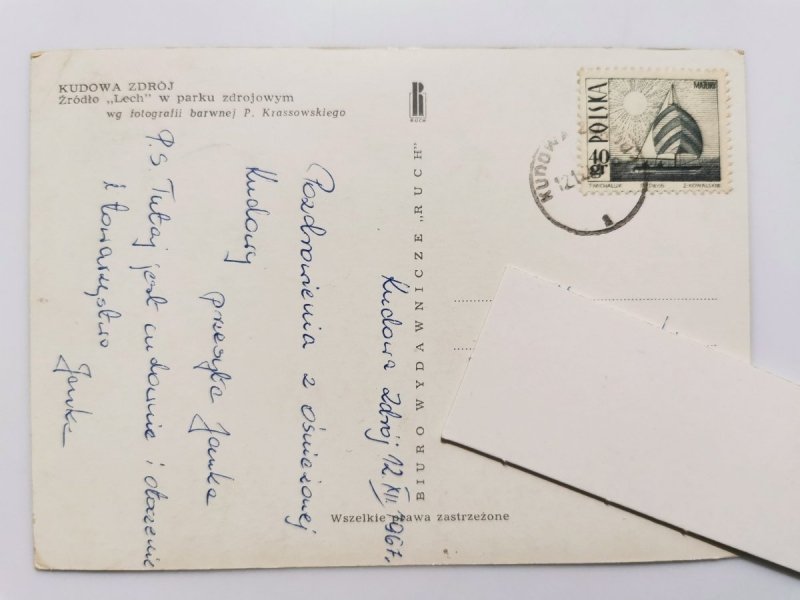 KUDOWA ZDRÓJ
Źródło „Lech” w parku zdrojowym
wg fotografii barwnej P. Krassowskiego
RUCH
BIURO WYDAWNICZE „RUCH”
Wszelkie prawa zastrzeżone
POLSKA
40 gr
MAZURY
T. MICHALUK
Z. KOWALSKI
KUDOWA
12.12
a
Kudowa Zdrój 12 XII 1967.
Pozdrowienia z ośnieżonej
Kudowy
przesyła Janka
P.S. Tutaj jest cudownie i otoczenie
i towarzystwo
Janka